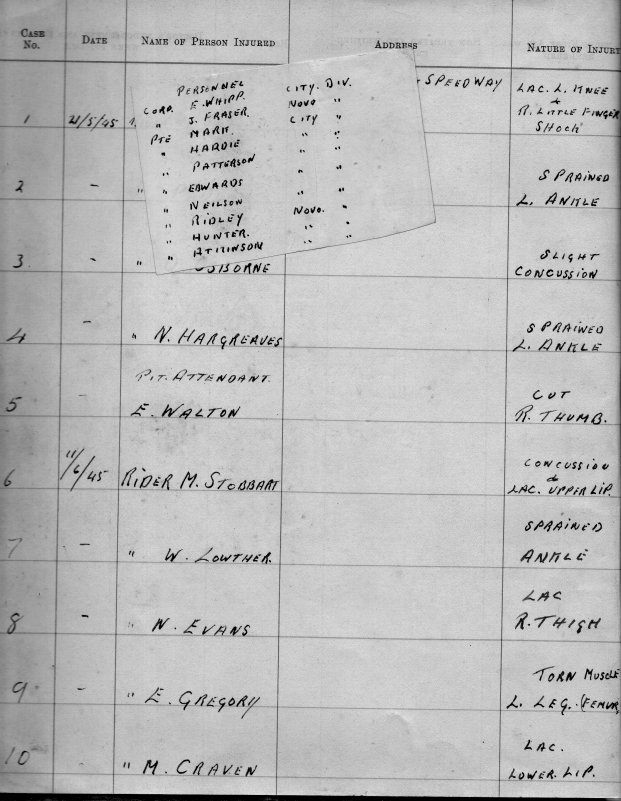 CASE No. DATE NAME OF PERSON INJURED ADDRESS NATURE OF INJURY
PERSONNEL CITY. DIV.
CORP. E. WHIPP. NOVO "
" J. FRASER. CITY "
PTE MARK. " "
" HARDIE " "
" PATTERSON " "
" EDWARDS " "
" NEILSON
" RIDLEY NOVO. "
" HUNTER. " "
" ATKINSON " "
SPEEDWAY
1 21/5/45 LAC. L. KNEE
& R. LITTLE FINGER
SHOCK
2 - " SPRAINED
L. ANKLE
3 - " OSBORNE SLIGHT
CONCUSSION
4 - " N. HARGREAVES SPRAINED
L. ANKLE
PIT. ATTENDANT.
5 - E. WALTON CUT
R. THUMB.
6 11/6/45 RIDER M. STOBBART CONCUSSION
&
LAC. UPPER LIP.
7 - " W. LOWTHER. SPRAINED
ANKLE
8 - " N. EVANS LAC
R. THIGH
9 - " E. GREGORY TORN MUSCLE
L. LEG. (FEMUR)
10 - " M. CRAVEN LAC.
LOWER. LIP.